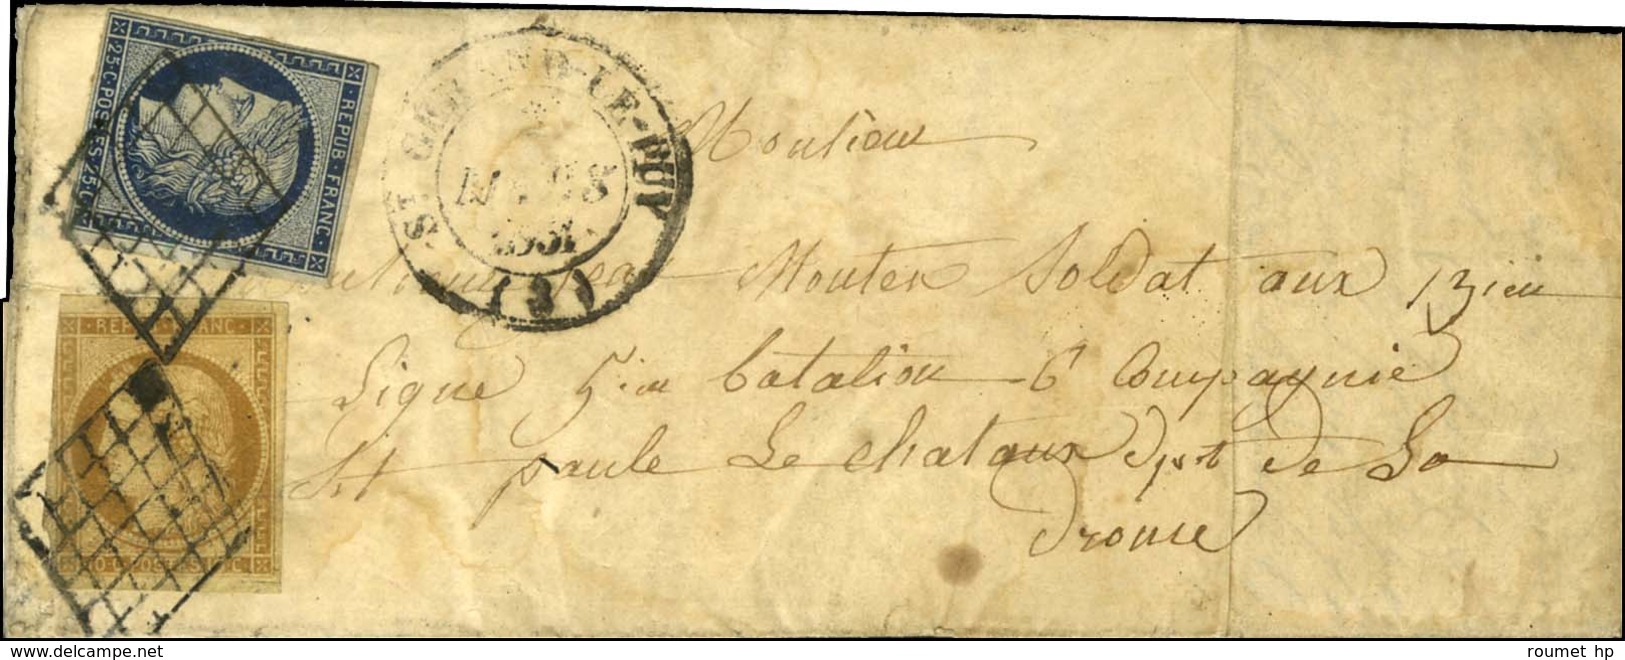 REPUB. FRANC.
25. C. POSTES. 25. C.
ST GERMAND-LE-PUY
28
1851
(3)
Monsieur
Mouter Soldat aux 13 ieu
Ligne 5ieu batalion 6e Compagnie
St paule Le chataux Dpt de La
Drome
REPUB. FRANC.
10. C. POSTES 10. C.
www.delcampe.net
roumet hp